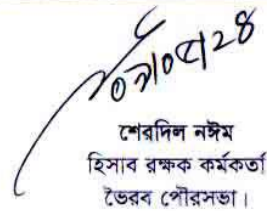 শেরদিল নঈম
হিসাব রক্ষক কর্মকর্তা
ভৈরব পৌরসভা।